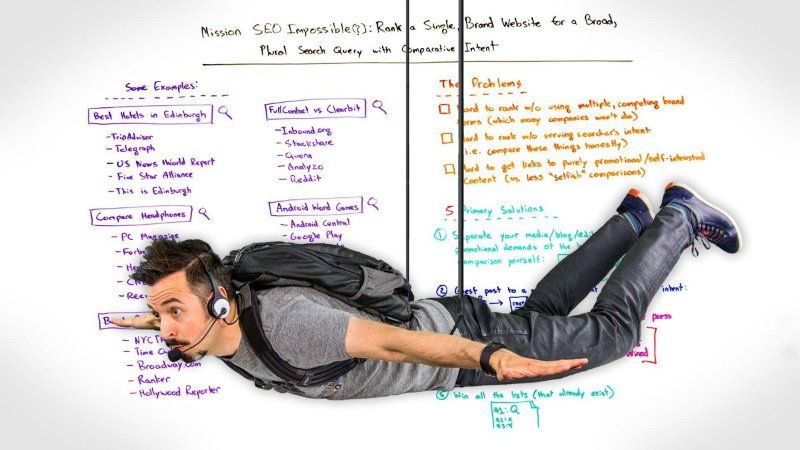 Mission SEO Impossible(?): Rank a Single, Brand Website for a Broad,
Plural Search Query with Comparative Intent
Some Examples:
Best Hotels in Edinburgh
- TripAdvisor
- Telegraph
- US News & World Report
- Five Star Alliance
- This is Edinburgh
Compare Headphones
- PC Magazine
- Forb
- He
- CN
- Ree
B
- NYC Th
- Time Ou
- Broadway.com
- Ranker
- Hollywood Reporter
FullContact vs Clearbit
- Inbound.org
- Stackshare
- Quora
- Analyzo
- Reddit
Android Word Games
- Android Central
- Google Play
The Problems
Hard to rank w/o using multiple, competing brand
terms (which many companies won't do)
Hard to rank w/o serving searcher's intent
i.e. compare these things honestly)
Hard to get links to purely promotional/self-interested
content (vs. less "selfish" comparisons)
5 Primary Solutions
① Separate your media/blog/edit
promotional demands of the
comparison yourself:
② Guest post to a intent:
press
Wired
⑤ Win all the lists (that already exist)
#1: Q
#2: X
#3: Y